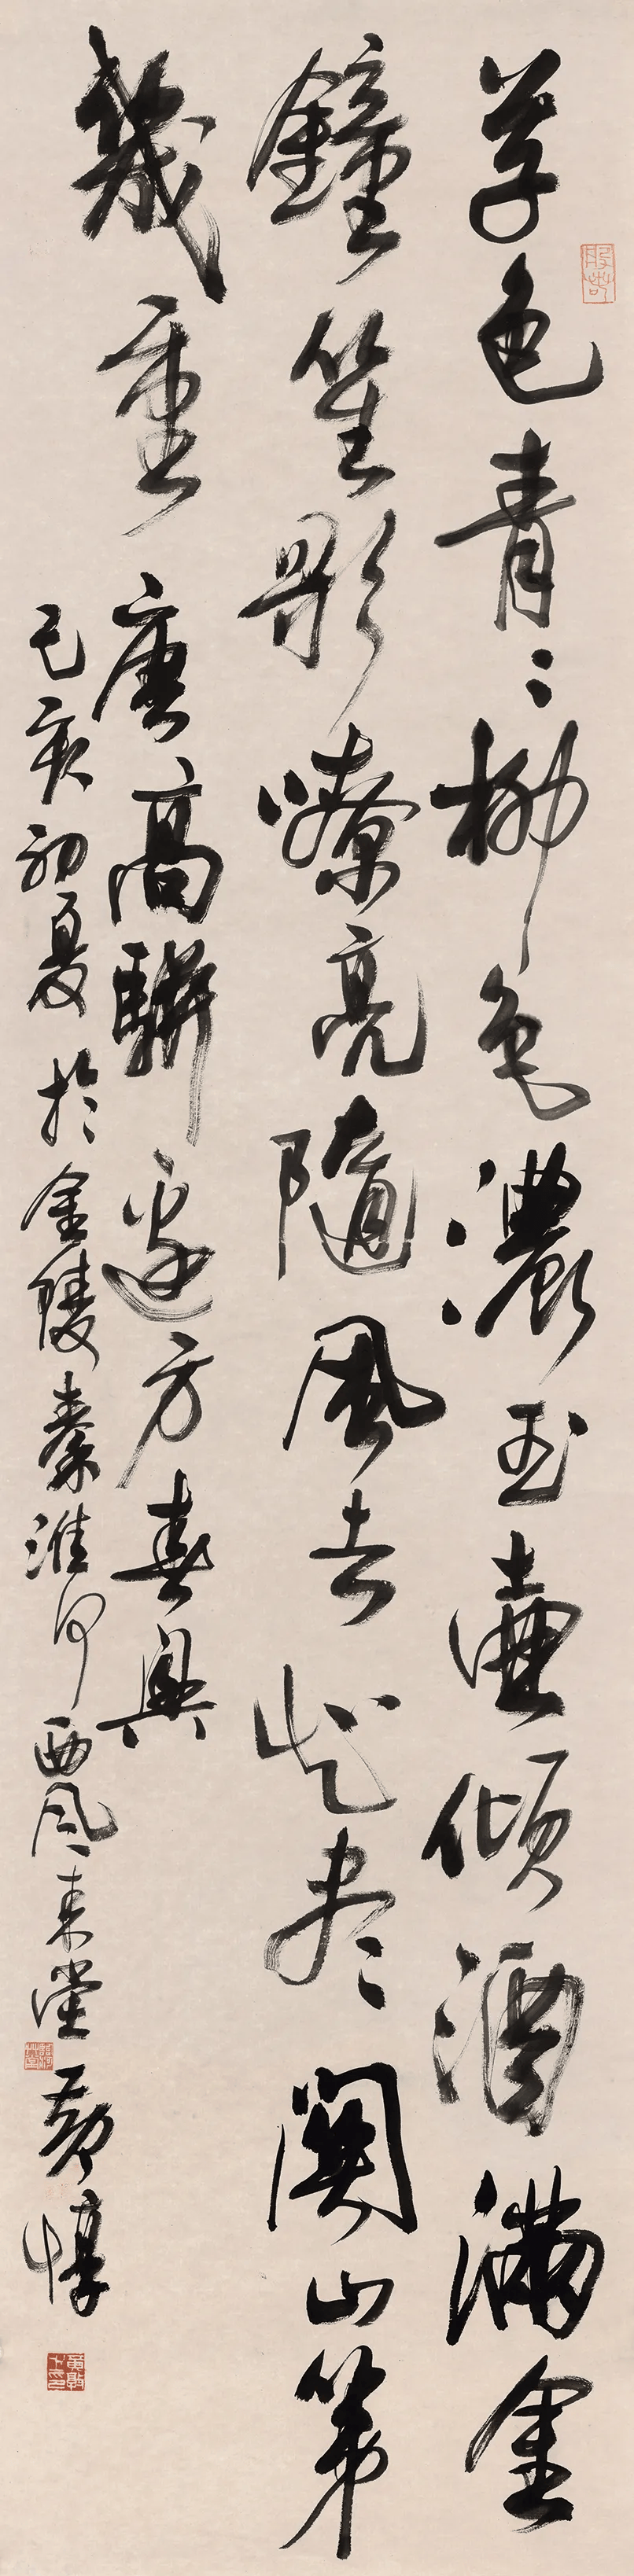 草色青〻柳色濃玉壺傾酒滿金
鐘笙歌嘹亮隨風去知尽關山第
幾重 唐高駢邊方春興
己亥初夏於金陵秦淮河西風來堂黃惇